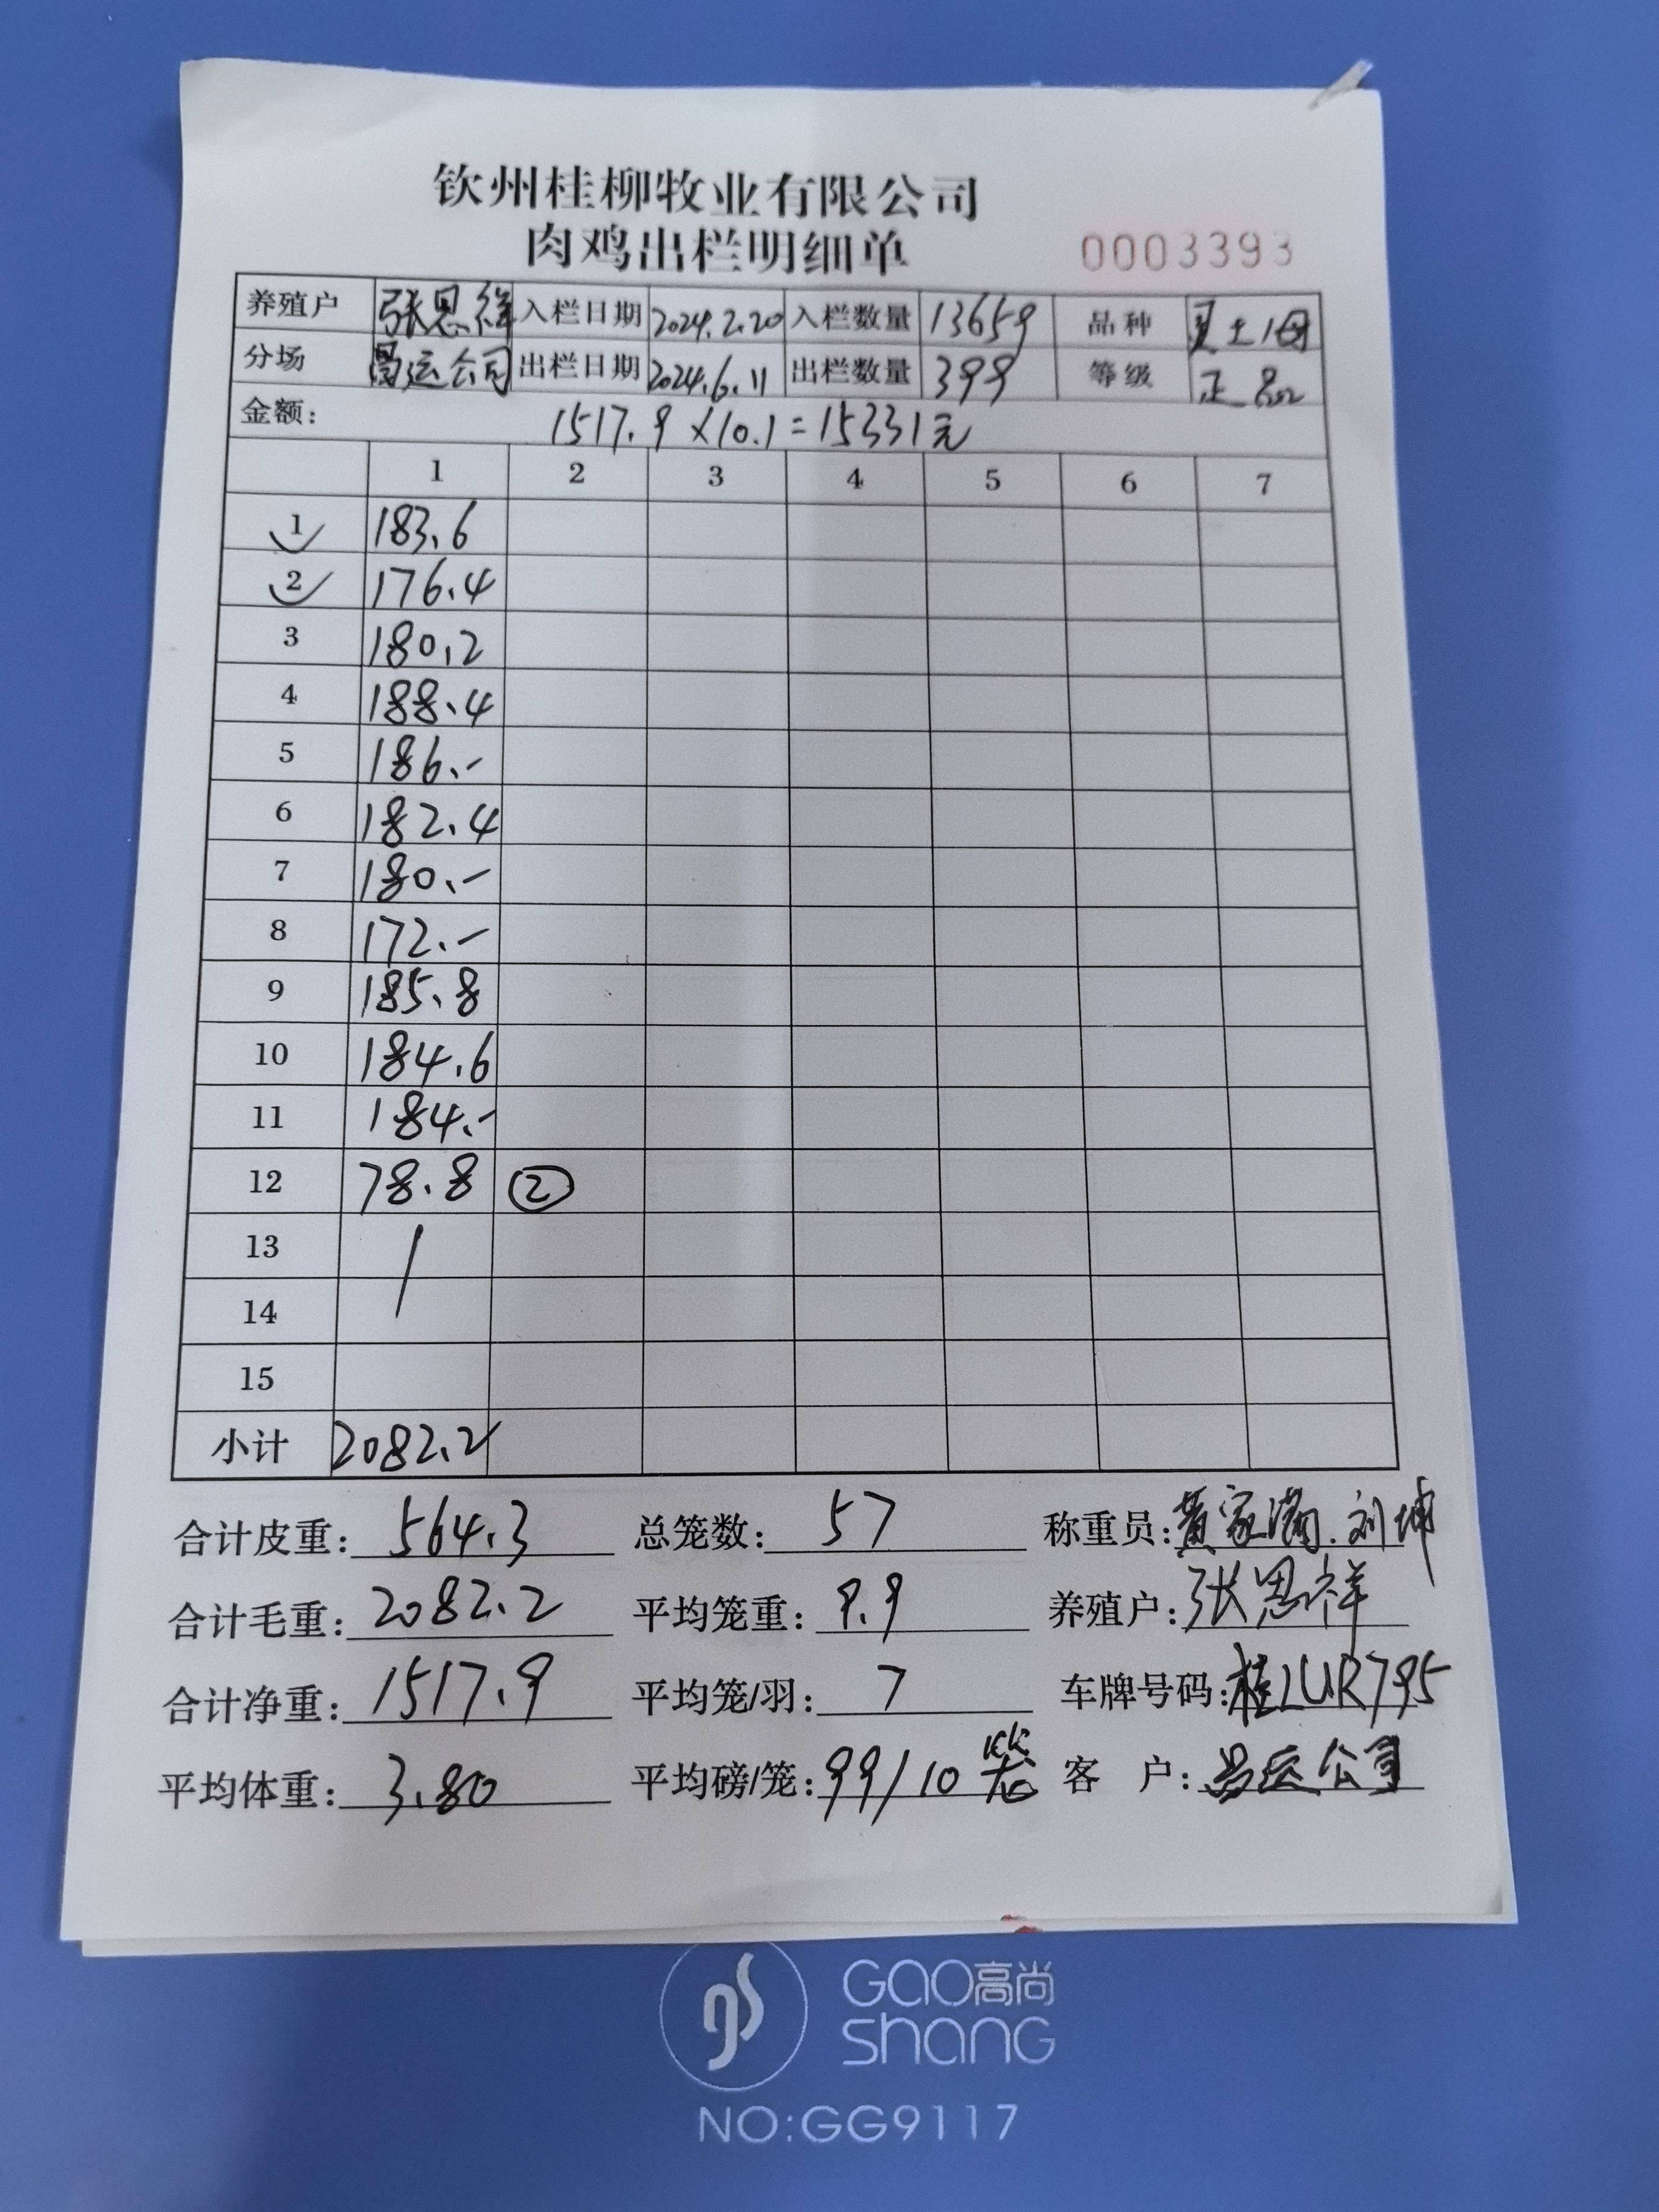 钦州桂柳牧业有限公司
肉鸡出栏明细单 0003393
养殖户 张恩祥 入栏日期 2024.2.20 入栏数量 13659 品种 土1母
分场 昌运公司 出栏日期 2024.6.11 出栏数量 399 等级 正品
金额: 1517.9×10.1=15331元
1 2 3 4 5 6 7
1 183.6
2 176.4
3 180.2
4 188.4
5 186.-
6 182.4
7 180.-
8 172.-
9 185.8
10 184.6
11 184.-
12 78.8 ②
13
14
15
小计 2082.2
合计皮重: 564.3 总笼数: 57 称重员: 黄家满.刘坤
合计毛重: 2082.2 平均笼重: 9.9 养殖户: 张恩祥
合计净重: 1517.9 平均笼/羽: 7 车牌号码: 桂LUR795
平均体重: 3.80 平均磅/笼: 99/10笼 客 户: 昌运公司
gs GAO高尚
ShANG
NO:GG9117